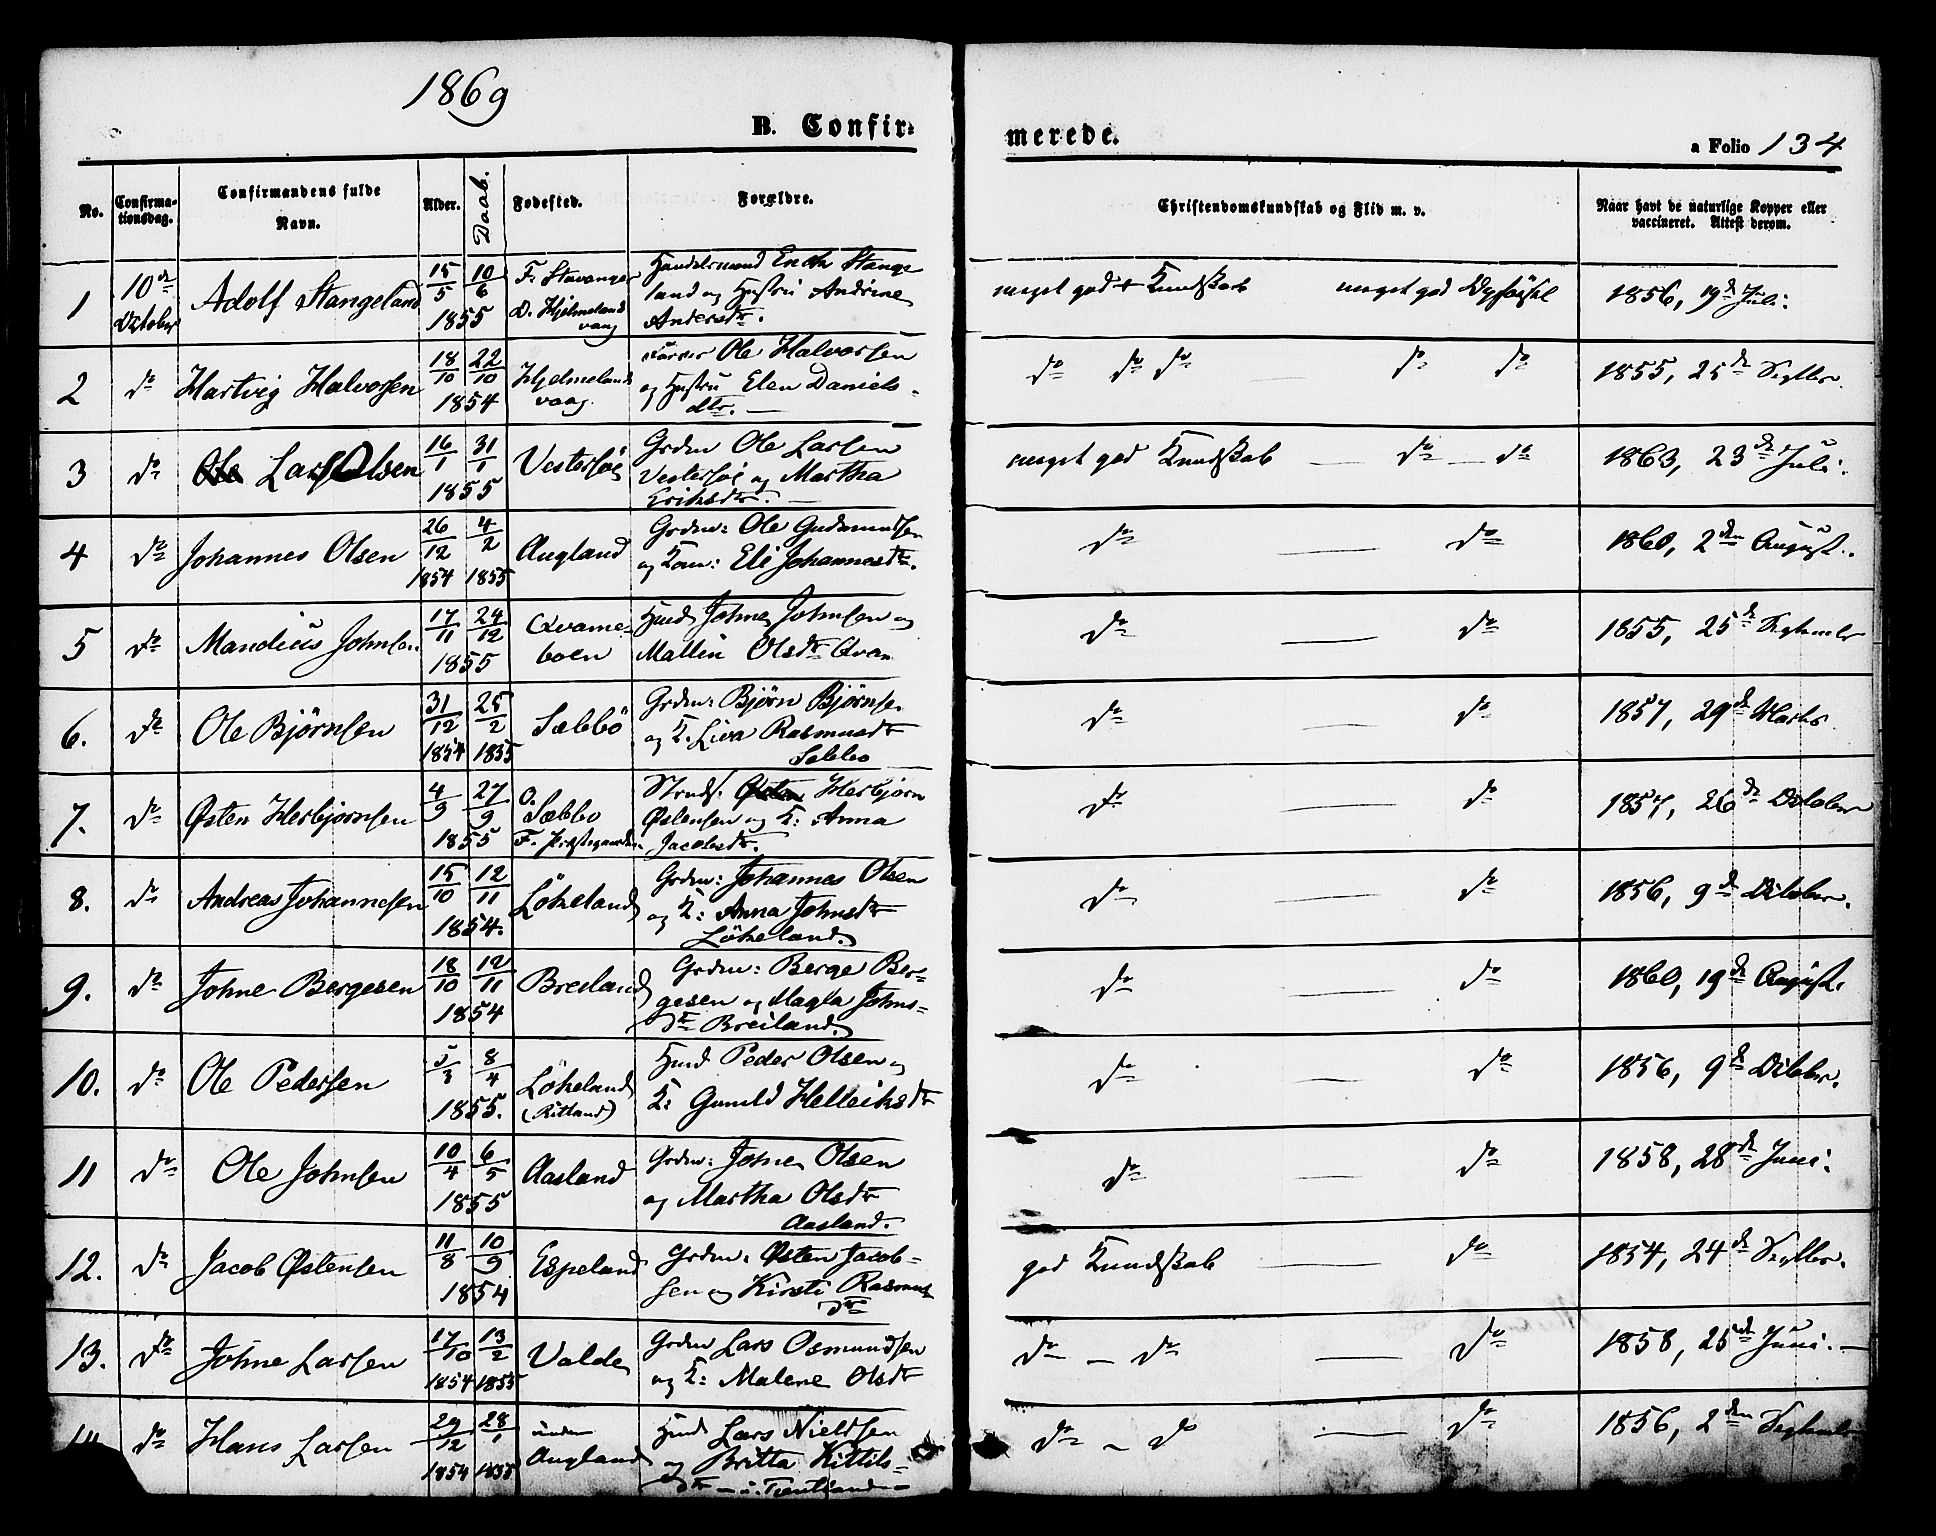 1869
B. Confir-
merede.
a Folio 134
No.
Confirma-
tionsdag.
Confirmandens fulde
Navn.
Alder.
Daab.
Fødested.
Forældre.
Christendomskundskab og Flid m. v.
Naar havt de naturlige Kopper eller
vaccineret. Attest derom.
1 10de October Adolf Stangeland 15/5 10/6 1855 F. Stavanger D. Hjelmelands vaag
Handelsmand Enok Stange
land og Hustru Andrine
Andersdtr.
meget god Kundskab meget god Opførsel 1856, 19d Juli.
2 do Hartvig Halvorsen 18/10 22/10 1854 Hjelmelands vaag
Ole Halvorsen
og Hustru Elen Daniels
dtr. —
do do do — do do 1855, 25de Septbr.
3 do Ole Lars Olsen 16/1 31/1 1855 Vestersøe
Grdm Ole Larsen
Vestersøe og Martha
Eriksdtr. —
meget god Kundskab — do — do 1863, 23de Juli.
4 do Johannes Olsen 26/12 1854 4/2 1855 Augland
Grdm: Ole Gudmundsen
og Kone: Eli Johannesdtr.
do — do 1860, 2den August.
5 do Mandius Johnsen 17/11 24/12 1855 Qvame-
boen
Hmd Johne Johnsen og
Mallin Olsdtr Qvam
do — do 1855, 25d Septembr
6. do Ole Bjørnsen 31/12 1854 25/2 1855 Sæbbø
Grdm: Bjørn Bjørnsen
og K. Liva Rasmusdtr
Sæbbø
do — do 1857, 29d Marts.
7. do Østen Herbjørnsen 4/9 27/9 1855 O. Sæbbø
F. Præstegaarden
Strnds. Østen Herbjørn
Østensen og K: Anna
Jacobsdtr.
do — do 1857, 26de October
8. do Andreas Johannesen 15/10 12/11 1854. Løkeland
Grdm: Johannes Olsen
og K: Anna Johnsdtr
Løkeland.
do — do 1856, 9d October.
9. do Johne Bergesen 18/10 12/11 1854 Breiland
Grdm: Berge Ber-
gesen og Magla Johns-
dtr Breiland.
do — do 1860, 19de August.
10. do Ole Pedersen 5/3 8/4 1855. Løkeland
(Ritland)
Hmd Peder Olsen og
K: Gunild Helleiksdtr
do — do 1856, 9d Octobr.
11 do Ole Johnsen 10/4 6/5 1855 Aasland
Grdm: Johne Olsen
og Martha Olsdtr
Aasland.
do — do 1858, 28de Juni.
12. do Jacob Østensen 11/8 10/9 1854 Espeland
Grdm: Østen Jacob-
sen og Kirsti Rasmus
dtr
god Kundskab — do 1854, 24de Septbr.
13. do Johne Larsen 17/10 1854 13/2 1855 Valde
Grdm Lars Osmundsen
og K: Malene Olsdtr
do — do — do 1858, 25de Juni. —
14 do Hans Larsen 29/12 1854 28/1 1855 under
Augland
Hmd Lars Nieldsen
og Britta Kittils-
dtr
do — do — do 1856, 2den Septembr